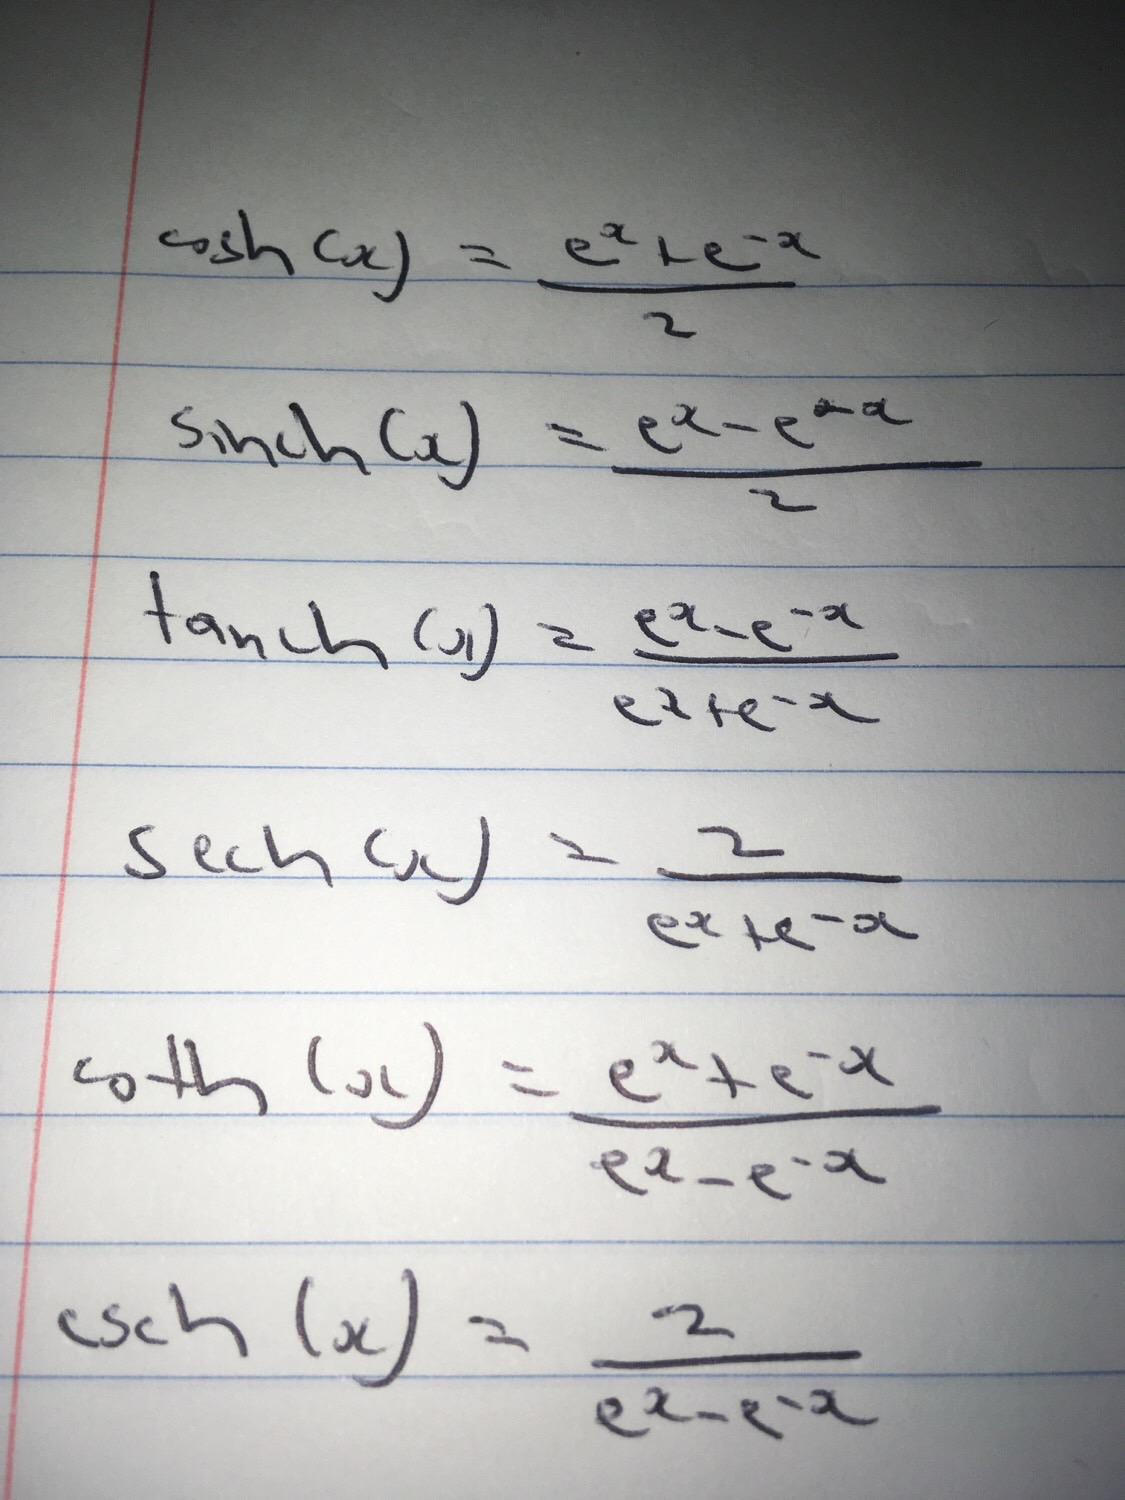 cosh(x) = (e^x + e^-x)/2
sinch(x) = (e^x - e^-x)/2
tanch(x) = (e^x - e^-x)/(e^x + e^-x)
sech(x) = 2/(e^x + e^-x)
coth(x) = (e^x + e^-x)/(e^x - e^-x)
csch(x) = 2/(e^x - e^-x)